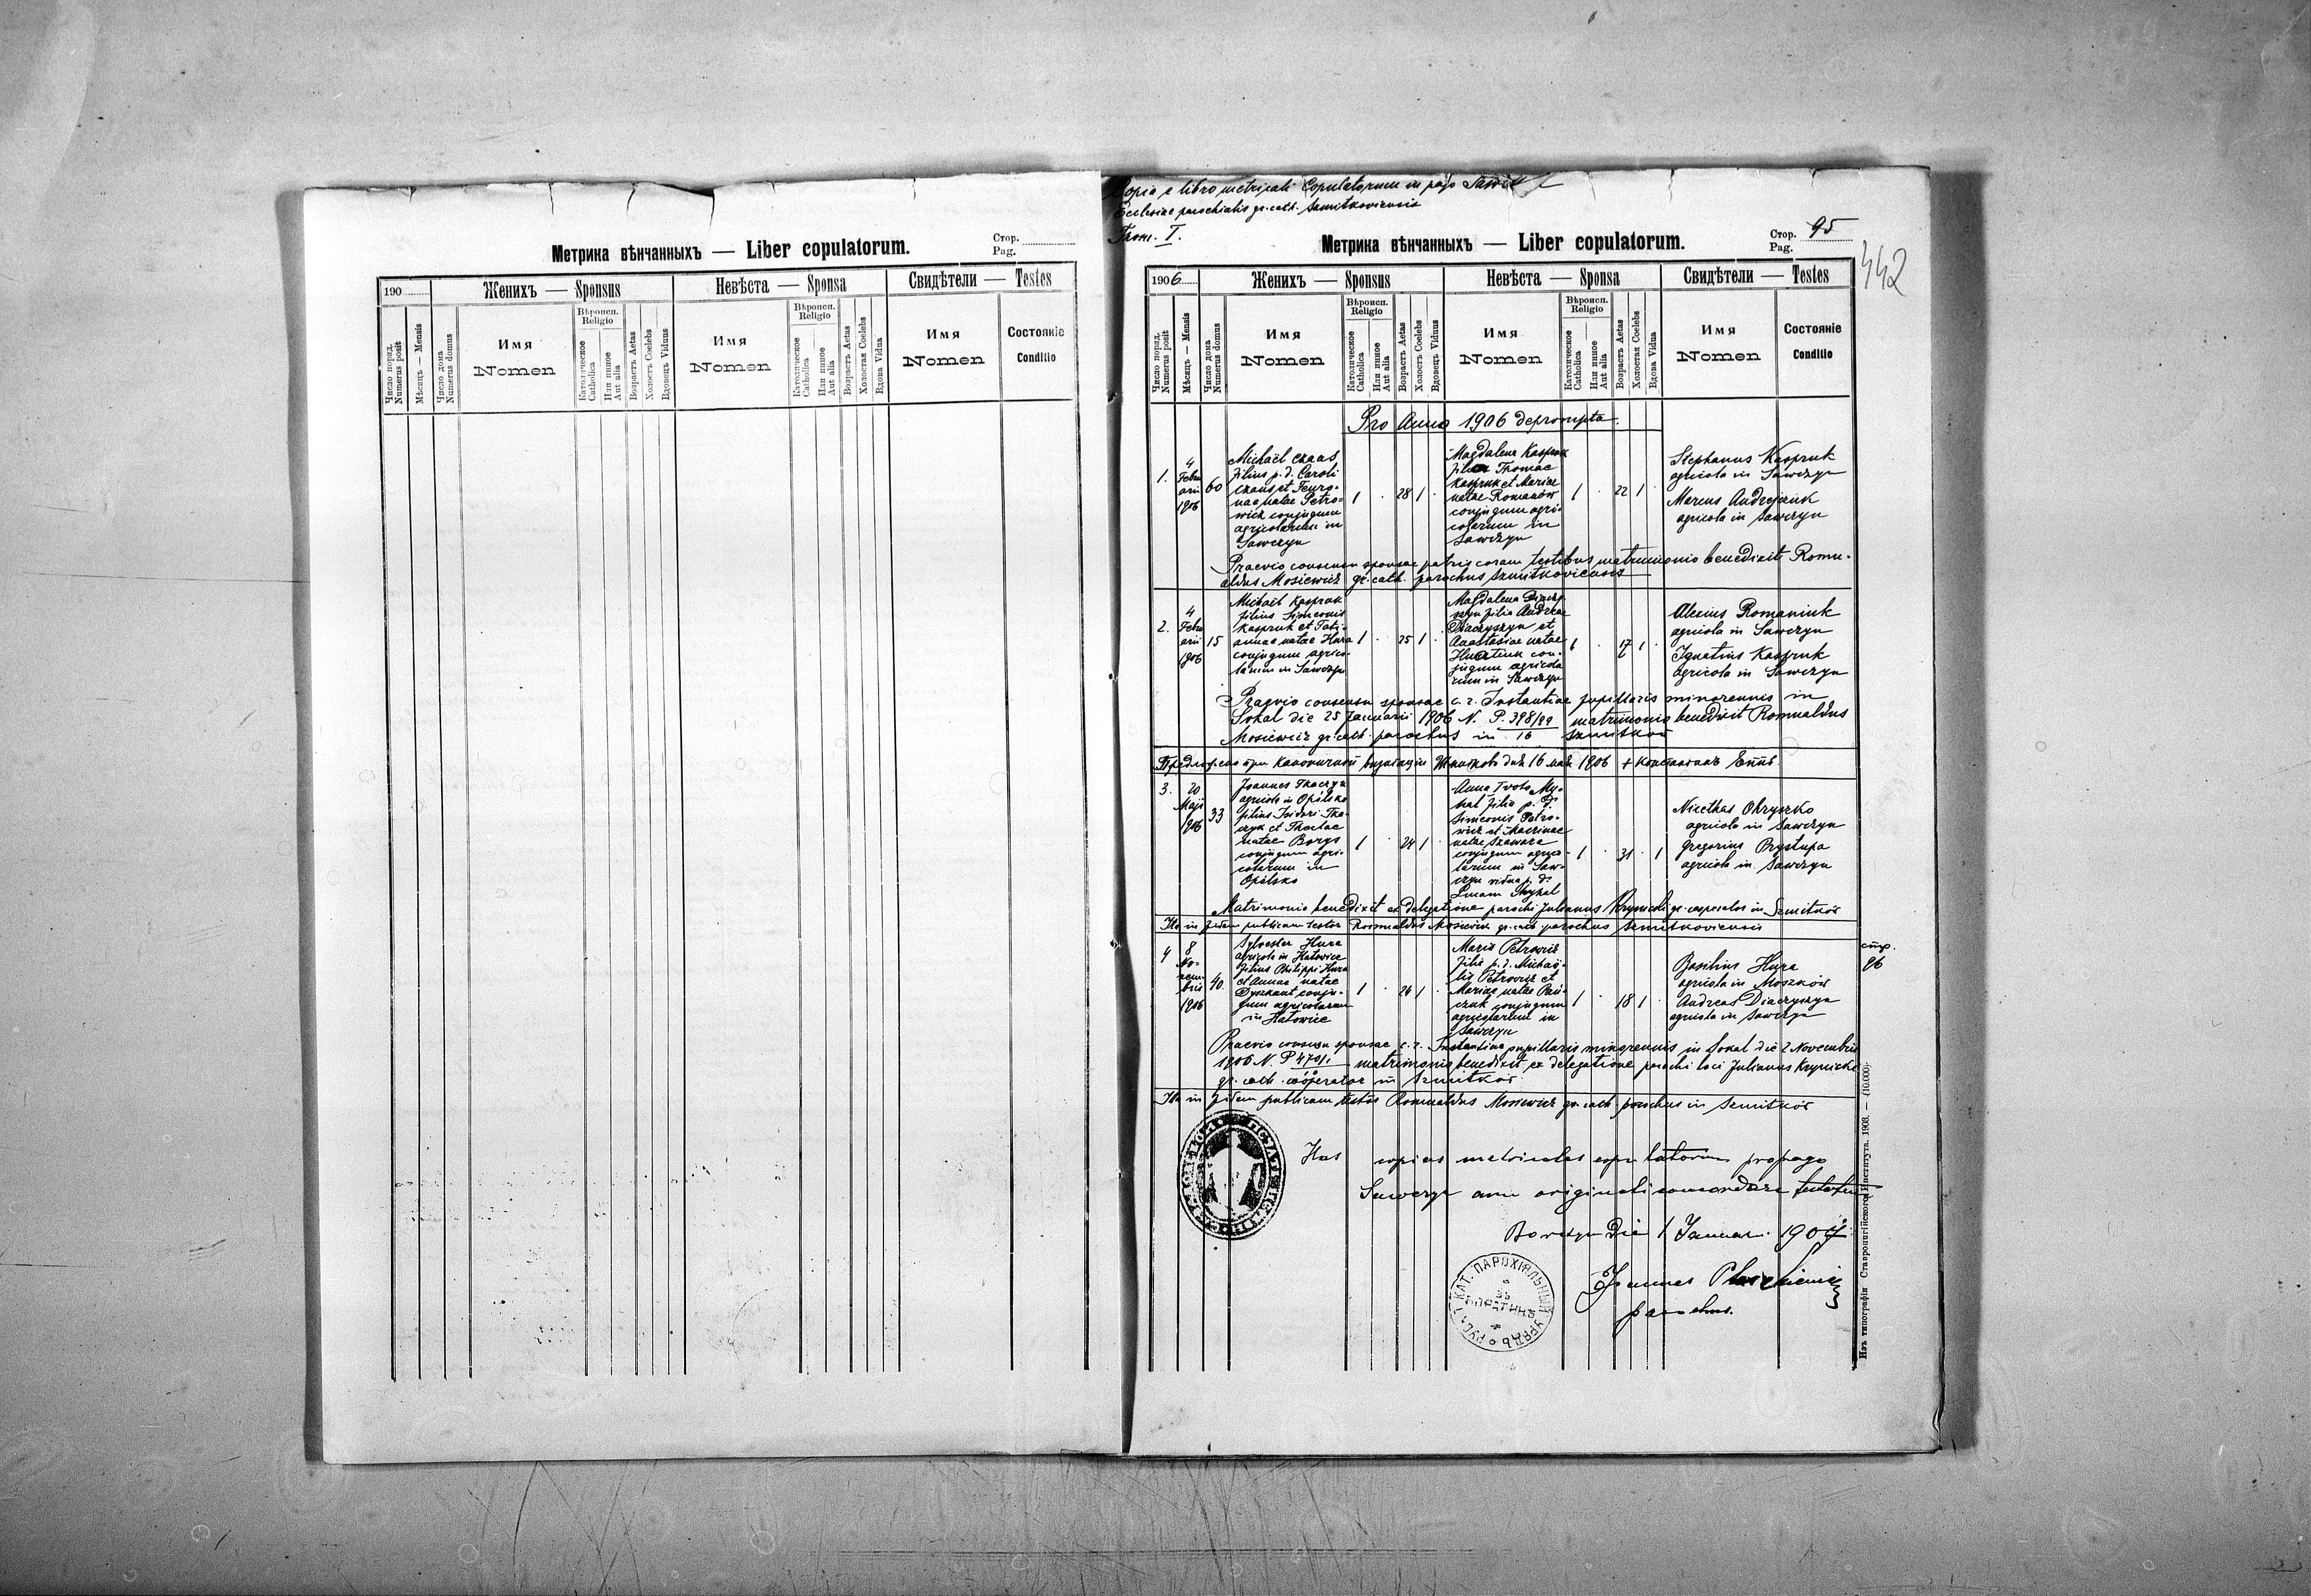 Стор.
Pag.
Метрика вѣнчанныхъ — Liber copulatorum.
190
Женихъ — Sponsus
Невѣста — Sponsa
Свидѣтели — Testes
Число поряд.
Numerus posit
Мѣсяцъ — Mensis
Число дома
Numerus domus
Имя
Nomen
Вѣроисп.
Religio
Католическое
Catholica
Или инное
Aut alia
Возрастъ Aetas
Холостъ Coelebs
Вдовецъ Viduus
Имя
Nomen
Вѣроисп.
Religio
Католическое
Catholica
Или инное
Aut alia
Возрастъ Aetas
Холостая Coelebs
Вдова Vidua
Имя
Nomen
Состояніе
Conditio
Copia e libro metricali Copulatorum in pago
Ecclesiae parochialis gr. cath. Szmitkoviensis
Tom. I.
Стор. 95
Pag.
442
Метрика вѣнчанныхъ — Liber copulatorum.
1906
Женихъ — Sponsus
Невѣста — Sponsa
Свидѣтели — Testes
Число поряд.
Numerus posit
Мѣсяцъ — Mensis
Число дома
Numerus domus
Имя
Nomen
Вѣроисп.
Religio
Католическое
Catholica
Или инное
Aut alia
Возрастъ Aetas
Холостъ Coelebs
Вдовецъ Viduus
Имя
Nomen
Вѣроисп.
Religio
Католическое
Catholica
Или инное
Aut alia
Возрастъ Aetas
Холостая Coelebs
Вдова Vidua
Имя
Nomen
Состояніе
Conditio
Pro Anno 1906 deprompta
1.
4
Febru
arii
1906
60
Michaël
filius p. d. Caroli
et Feuro-
natae Petro-
wicz conjugum
agricolarum in
Sawczyn
1 . 28 1 .
Magdalena Kaspruk
filia Thomae
Kaspruk et Mariae
natae Romanów
conjugum agri-
colarum in
Sawczyn
1 . 22 1 .
Stephanus Kaspruk
agricola in Sawczyn
Marcus Andrejczuk
agricola in Sawczyn
Praevio consensu sponsae patris coram testibus matrimonio benedixit Romu-
aldus Mosiewicz gr. cath. parochus Szmitkoviensis
2.
4
Febru
arii
1906
15
Michaël Kaspruk
filius Simeonis
Kaspruk et Tati-
annae natae Hura
conjugum agrico-
larum in Sawczyn
1 . 25 1 .
Magdalena Diaczy-
szyn filia Andreae
Diaczyszyn et
Anastasiae natae
con-
jugum agricola
rum in Sawczyn
1 . 17 1 .
Alexius Romaniuk
agricola in Sawczyn
Ignatius Kaspruk
agricola in Sawczyn
Praevio consensu sponsae c. r. Instantiae pupillaris minorennis in
Sokal die 25 Januarii 1906 N. P. 398/99 matrimonio benedixit Romualdus
Mosiewicz gr. cath. parochus in 16 Szmitków
при каноничной визитаціи дня 16 мая 1906 + Константинъ Еппъ.
3.
20
Maji
1906
33
Joannes Tkaczyk
agricola in Opilsko
filius Isidori Tka-
czyk et Theclae
natae Borys
conjugum agri-
colarum in
Opilsko
1 . 24 1 .
Anna
filia p. d.
Simeonis Petro-
wicz et Macrinae
natae
conjugum agrico-
larum in Saw-
czyn vidua p. d.
Lucam
1 . 31 . 1
Nicethas Ohryszko
agricola in Sawczyn
Gregorius Prystupa
agricola in Sawczyn
Matrimonio benedixit ex delegatione parochi Julianus Krynicki gr. cooperator in Szmitków
Ita in fidem publicam testor Romualdus Mosiewicz gr. cath. parochus Szmitkoviensis
4
8
No-
vem-
bris
1906
40.
Sylvester Hura
agricola in Hatowice
filius Philippi Hura
et Annae natae
Dyszkant conju-
gum agricolarum
in Hatowice
1 . 24 1 .
Maria Petrowicz
filia p. d. Michaë-
lis Petrowicz et
Mariae natae
conjugum
agricolarum in
Sawczyn
1 . 18 1 .
Basilius Hura
agricola in Moszków
Andreas Diaczyszyn
agricola in Sawczyn
стр.
96
Praevio consensu sponsae c. r. Instantiae pupillaris minorennis in Sokal die 2 Novembris
1906 N. P 470/1 matrimonio benedixit ex delegatione parochi loci Julianus Krynicki
gr. cath. cooperator in Szmitków
Ita in fidem publicam testor Romualdus Mosiewicz gr. cath. parochus in Szmitków
Has copias metricales copulatorum pro pago
Sawczyn cum originali concordare testatur
die 1 Januari 1907
Joannes
parochus.
КАТ. ПАРОХІЯЛЬНЫЙ УРЯДЪ
Изъ типографіи Ставропигійского Института. 1903. — (10.000).